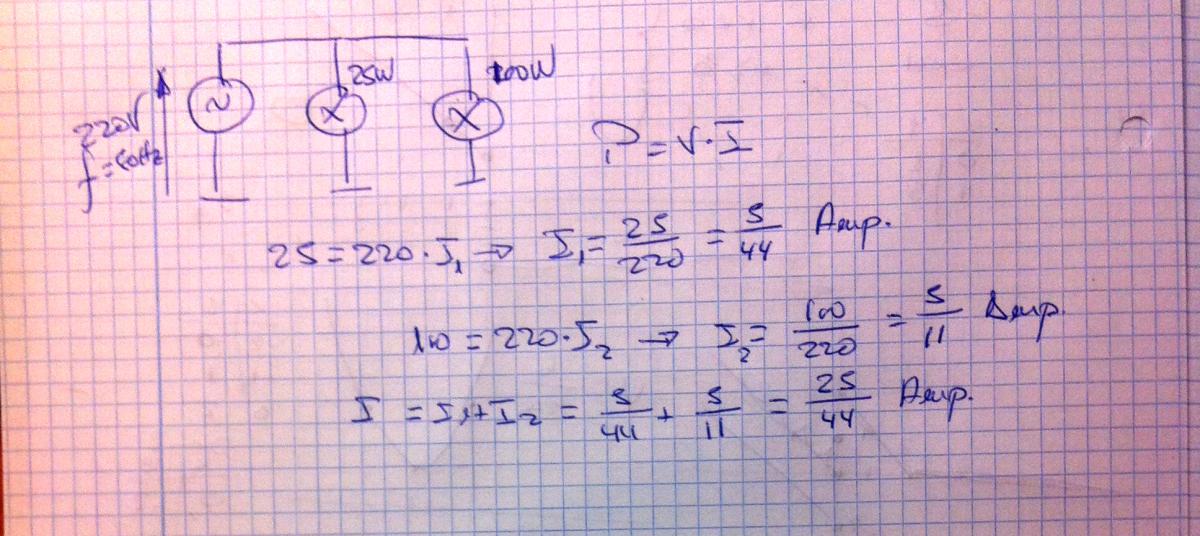 25W 100W
220V
f=50Hz
P = V·I
25 = 220·I₁ → I₁ = 25/220 = 5/44 Amp.
100 = 220·I₂ → I₂ = 100/220 = 5/11 Amp.
I = I₁+I₂ = 5/44 + 5/11 = 25/44 Amp.